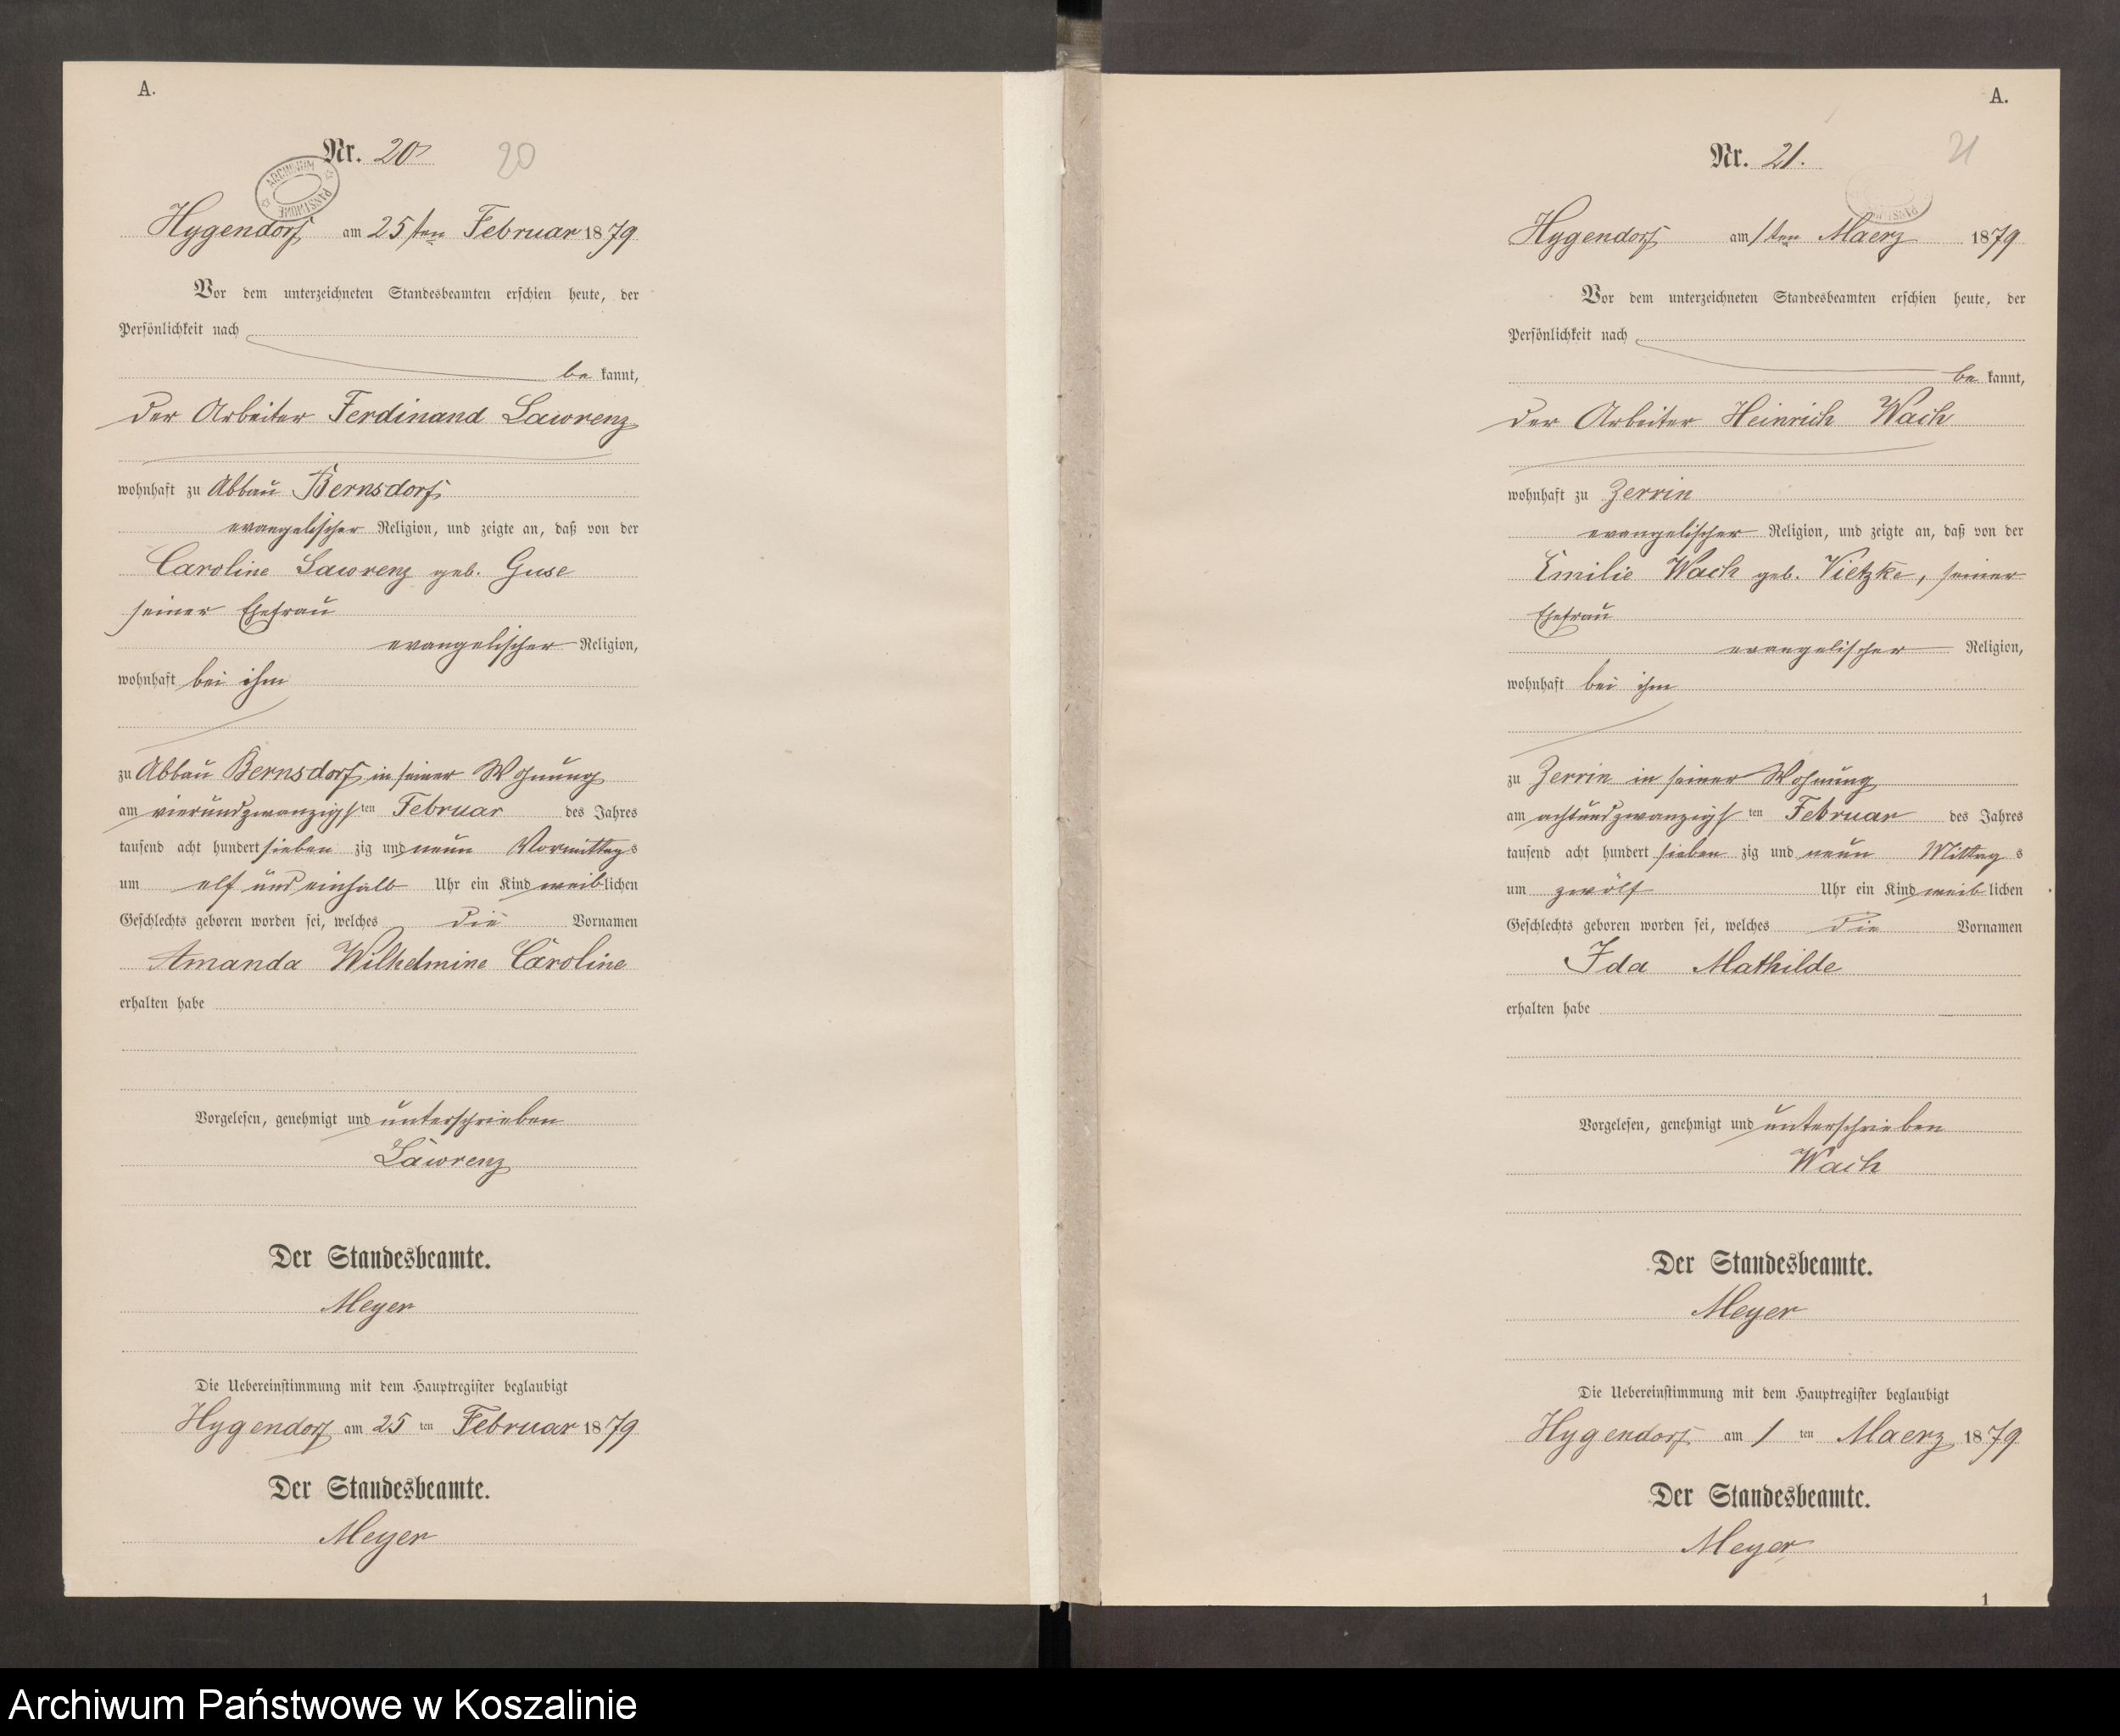 A.
Nr. 20
20
ARCHIWUM PAŃSTWOWE
Hygendorf am 25sten Februar 1879
Vor dem unterzeichneten Standesbeamten erschien heute, der
Persönlichkeit nach
be kannt,
der Arbeiter Ferdinand Lawrenz
wohnhaft zu Abbau Bernsdorf
evangelischer Religion, und zeigte an, daß von der
Caroline Lawrenz geb. Guse
seiner Ehefrau
evangelischer Religion,
wohnhaft bei ihm
zu Abbau Bernsdorf in seiner Wohnung
am vierundzwanzigsten Februar des Jahres
tausend acht hundert sieben zig und neun Vormittags
um elf und einhalb Uhr ein Kind weiblichen
Geschlechts geboren worden sei, welches die Vornamen
Amanda Wilhelmine Caroline
erhalten habe
Vorgelesen, genehmigt und unterschrieben
Lawrenz
Der Standesbeamte.
Meyer
Die Uebereinstimmung mit dem Hauptregister beglaubigt
Hygendorf am 25 ten Februar 1879
Der Standesbeamte.
Meyer
A.
Nr. 21.
21
Hygendorf am 1ten Maerz 1879
Vor dem unterzeichneten Standesbeamten erschien heute, der
Persönlichkeit nach
be kannt,
der Arbeiter Heinrich Wach
wohnhaft zu Zerrin
evangelischer Religion, und zeigte an, daß von der
Emilie Wach geb. Vietzke, seiner
Ehefrau
evangelischer Religion,
wohnhaft bei ihm
zu Zerrin in seiner Wohnung
am achtundzwanzigsten Februar des Jahres
tausend acht hundert sieben zig und neun Mittags
um zwölf Uhr ein Kind weiblichen
Geschlechts geboren worden sei, welches die Vornamen
Ida Mathilde
erhalten habe
Vorgelesen, genehmigt und unterschrieben
Wach
Der Standesbeamte.
Meyer
Die Uebereinstimmung mit dem Hauptregister beglaubigt
Hygendorf am 1 ten Maerz 1879
Der Standesbeamte.
Meyer
1
Archiwum Państwowe w Koszalinie